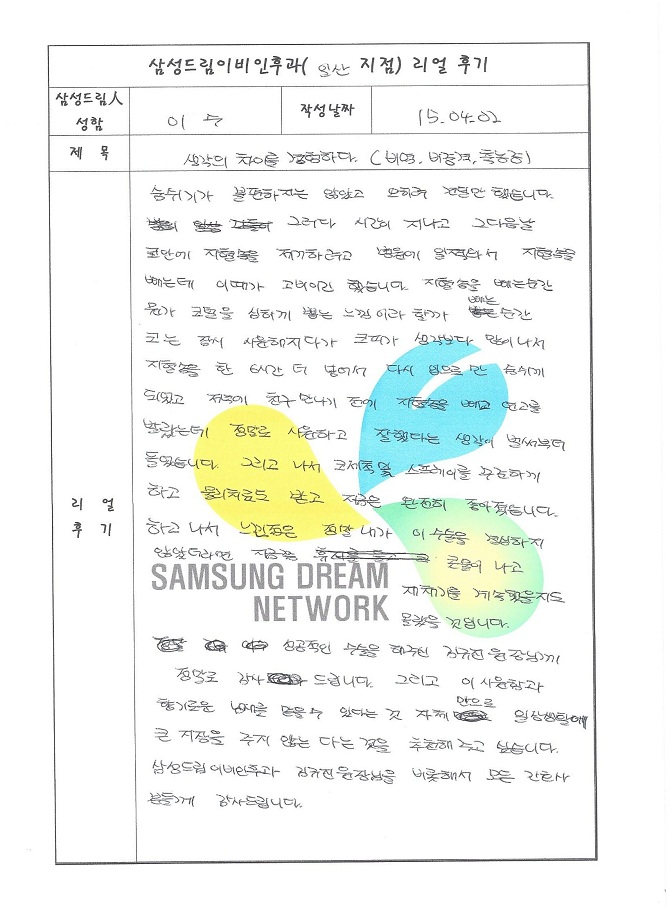 삼성드림이비인후과( 일산 지점) 리얼 후기
삼성드림人 성함
이
작성날짜
15.04.02
제 목
생각의 차이를 경험하다. (비염, 비중격, 축농증)
리 얼 후 기
숨쉬기가 불편하지는 않았고 오히려 견딜만 했습니다.
그러다 시간이 지나고 그다음날
코안에 지혈솜을 제거하려고 병원에 일찍와서 지혈솜을
빼는데 이때가 고비이긴 했습니다. 지혈솜을 빼는순간
뭔가 코털을 심하게 뽑는 느낌이랄까 빼는 순간
코는 잠시 시원해지다가 코피가 생각보다 많이나서
지혈솜을 한 6시간 더 넣어서 다시 입으로만 숨쉬게
되었고 저녁에 친구 만나기 전에 지혈솜을 빼고 연고를
발랐는데 정말로 시원하고 잘했다는 생각이 벌써부터
들었습니다. 그리고 나서 코세척및 스프레이를 꾸준하게
하고 물리치료도 받고 지금은 완전히 좋아졌습니다.
하고 나서 느낀점은 정말 내가 이 수술을 결심하지
않았더라면 지금쯤 콧물이 나고
재채기를 계속했을지도
몰랐을 것입니다.
SAMSUNG DREAM
NETWORK
성공적인 수술을 해주신 김규진 원장님께
정말로 감사 드립니다. 그리고 이 시원함과
향기로운 냄새를 맡을수 있다는 것 자체 만으로 일상생활에
큰 지장을 주지 않는 다는 것을 추천해 주고 싶습니다.
삼성드림이비인후과 김규진원장님을 비롯해서 모든 간호사
분들께 감사드립니다.